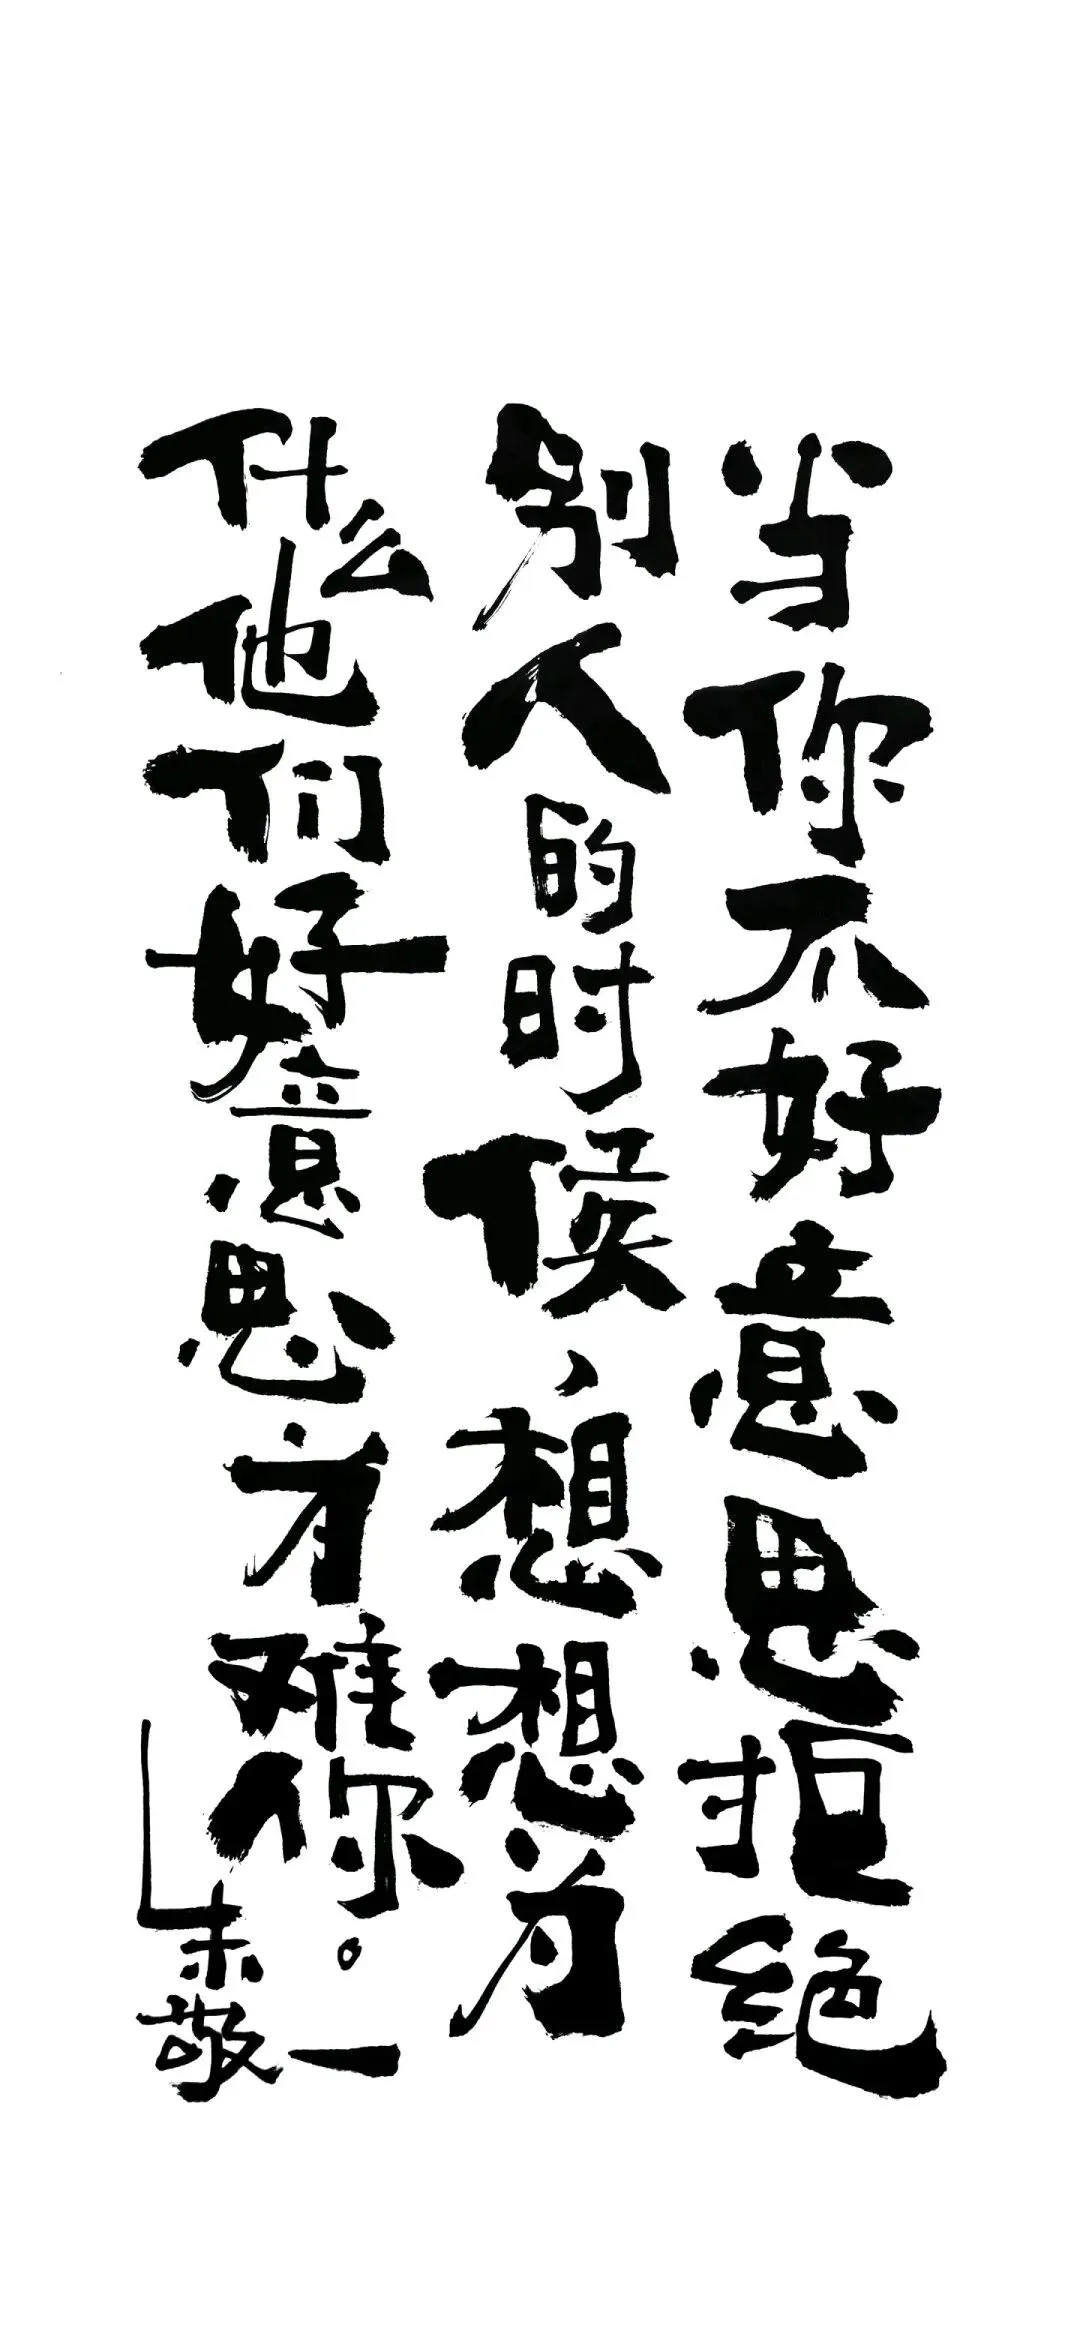 当你不好意思拒绝
别人的时侯，想想为
什么他们好意思为难你。
朱敬一